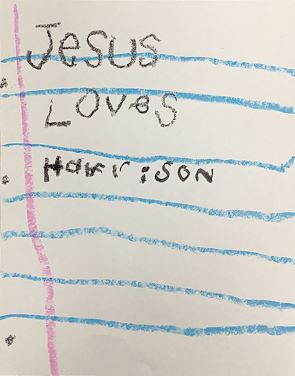 Jesus
Loves
Harrison